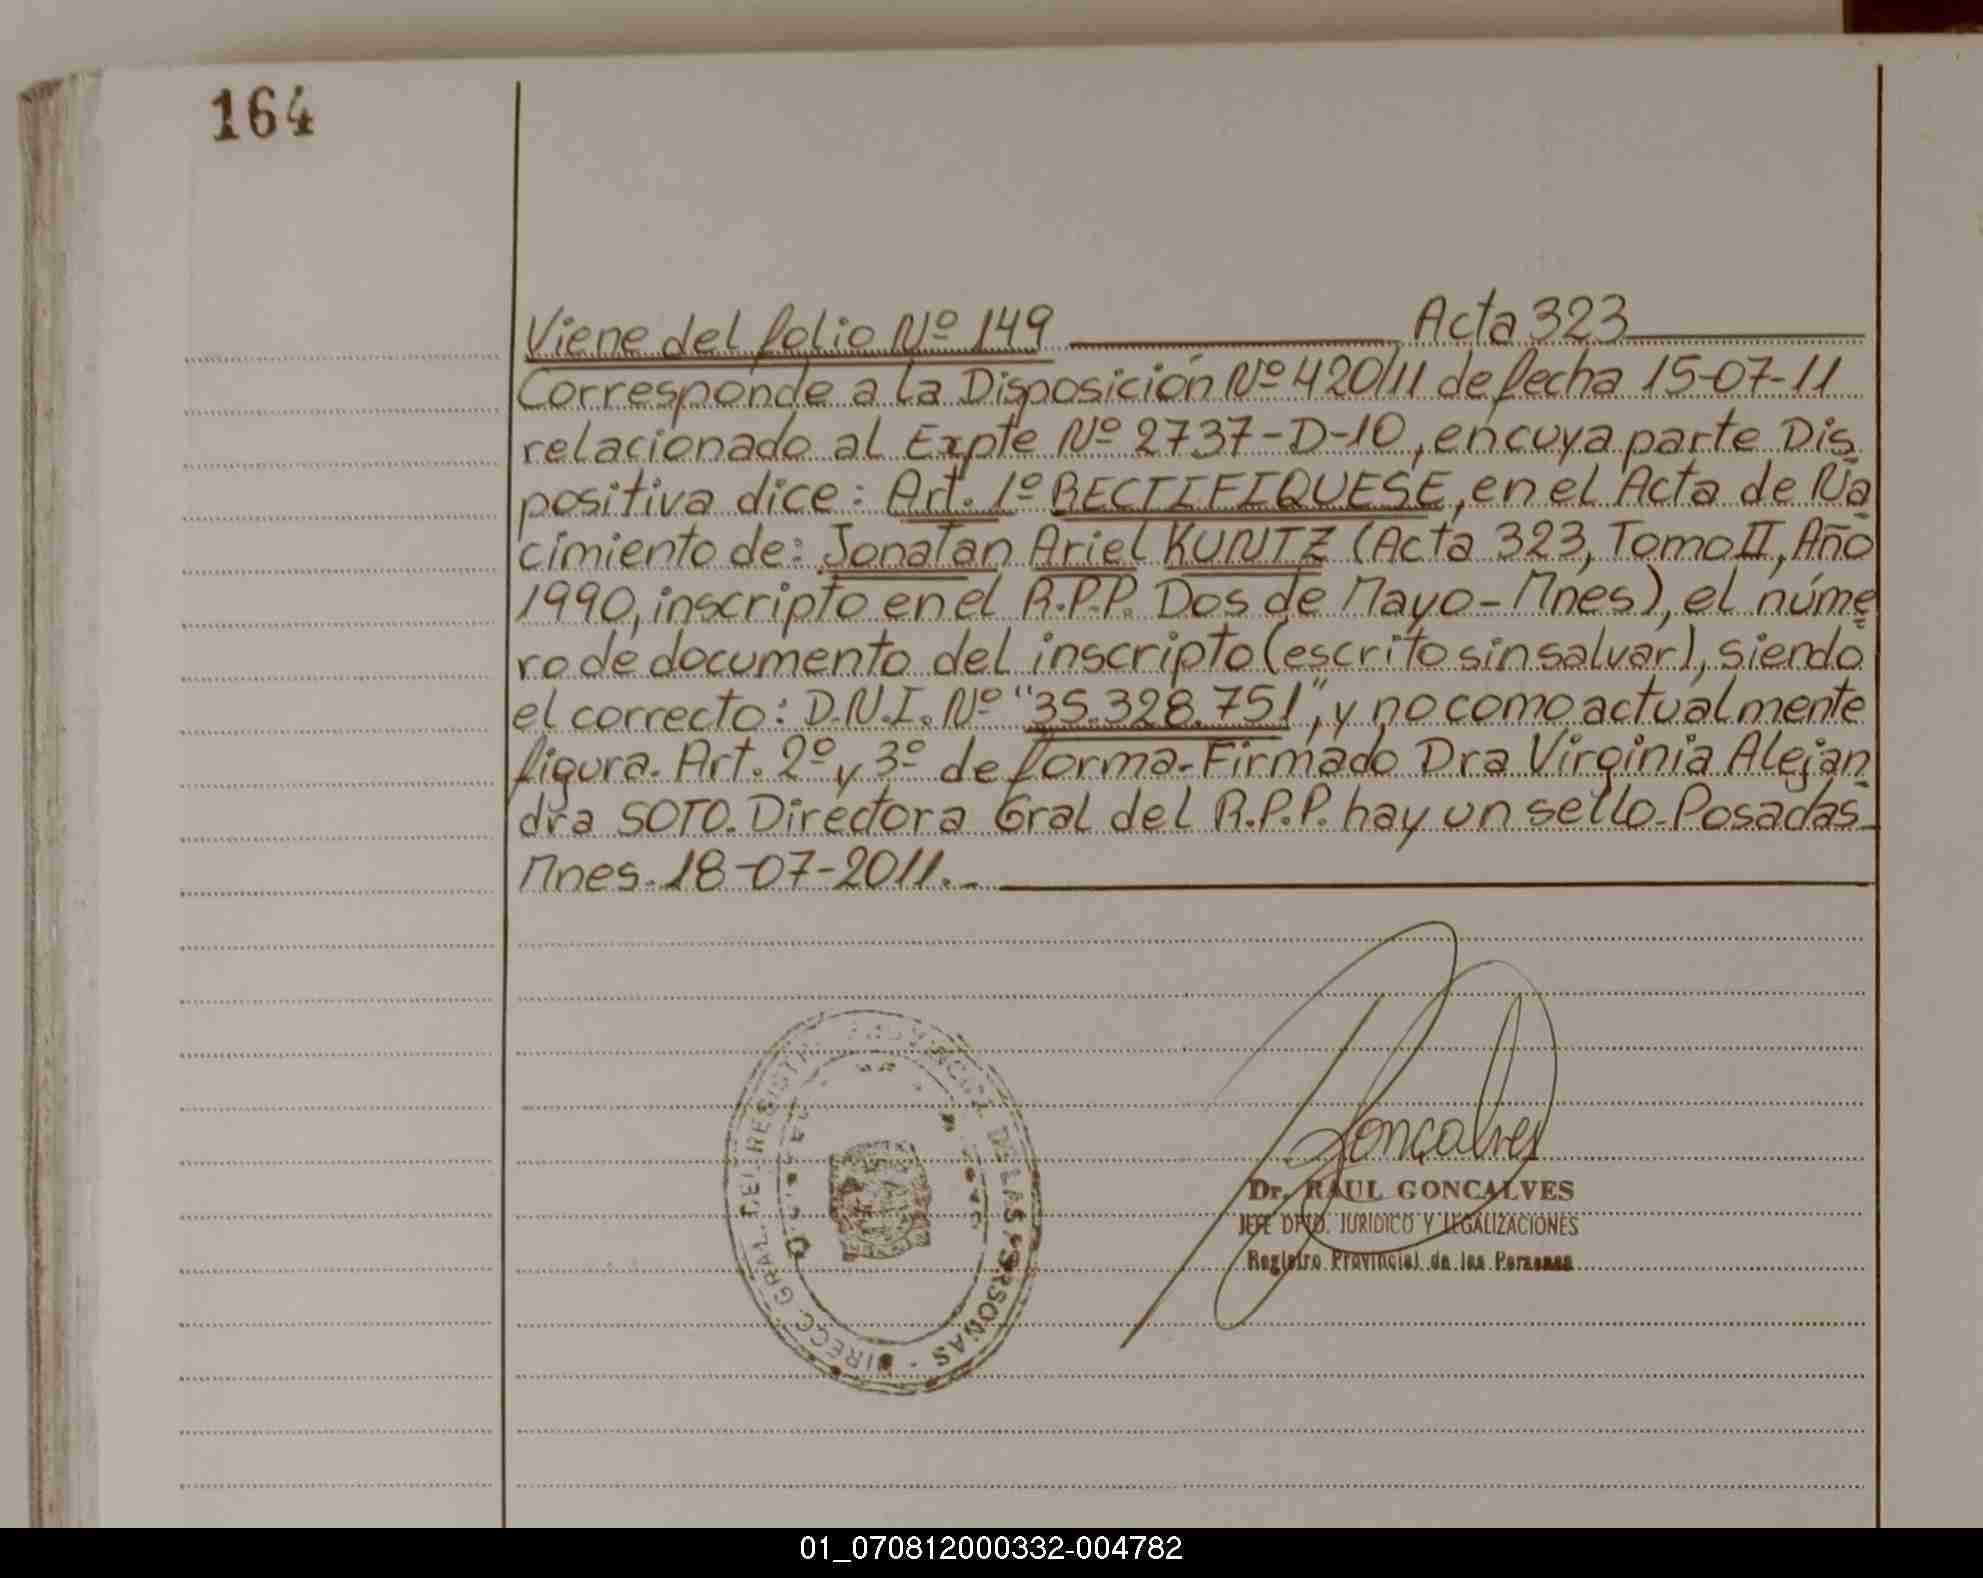 164
Viene del folio Nº 149 Acta 323
Corresponde a la Disposición Nº 420/11 de fecha 15-07-11
relacionado al Expte Nº 2737-D-10, en cuya parte Dis
positiva dice: Art. 1º RECTIFIQUESE, en el Acta de Na
cimiento de: Jonatan Ariel KUNTZ (Acta 323, Tomo II, Año
1990, inscripto en el R.P.P. Dos de Mayo-Mnes), el núme
ro de documento del inscripto (escrito sin salvar), siendo
el correcto: D.N.I. Nº "35.328.751", y no como actualmente
figura. Art. 2º y 3º de forma-Firmado Dra Virginia Alejan
dra SOTO. Directora Gral del R.P.P. hay un sello-Posadas-
Mnes. 18-07-2011.-
DIRECC. GRAL. DEL REGISTRO PROVINCIAL DE LAS PERSONAS -
Gonçalves
Dr. RAUL GONCALVES
JEFE DPTO. JURIDICO Y LEGALIZACIONES
Registro Provincial de las Personas
01_070812000332-004782